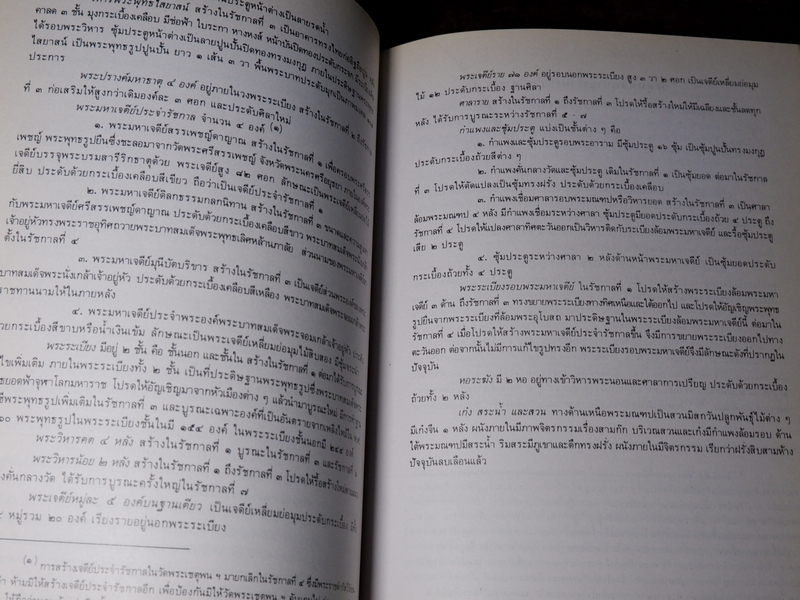 พระพุทธไสยาสน์ สร้างในรัชกาลที่ ๓ เป็นอาคารทรงไทย
คาลด ๓ ชั้น มุงกระเบื้องเคลือบ มีช่อฟ้า ใบระกา หางหงส์ หน้าบันปิดทองประดับกระจก
ได้รอบพระวิหาร ซุ้มประตูหน้าต่างเป็นลายปูนปั้นปิดทองทรงมงกุฎ ภายในประดิษฐาน
ไสยาสน์ เป็นพระพุทธรูปปูนปั้น ยาว ๑ เส้น ๓ วา พื้นพระบาทประดับมุกเป็นภาพ
ประการ
พระปรางค์มหาธาตุ ๔ องค์ อยู่ภายในวงพระระเบียง สร้างในรัชกาลที่
ที่ ๓ ก่อเสริมให้สูงกว่าเดิมองค์ละ ๓ ศอก และประดับศิลาใหม่
พระมหาเจดีย์ประจำรัชกาล จำนวน ๔ องค์ (๑)
๑. พระมหาเจดีย์สรรเพชญดาญาณ สร้างในรัชกาลที่ ๑ เพื่อครอบ
เพชญ์ พระพุทธรูปยืนซึ่งชะลอมาจากวัดพระศรีสรรเพชญ์ จังหวัดพระนครศรีอยุธยา
เจดีย์บรรจุพระบรมสารีริกธาตุด้วย พระเจดีย์สูง ๘๒ ศอก ลักษณะเป็นพระเจดีย์
ยี่สิบ ประดับด้วยกระเบื้องเคลือบสีเขียว ถือว่าเป็นเจดีย์ประจำรัชกาลที่ ๑
๒. พระมหาเจดีย์ดิลกธรรมกลนิทาน สร้างในรัชกาลที่ ๓ ขนาดและ
กับพระมหาเจดีย์ศรีสรรเพชญ์ดาญาณ ประดับด้วยกระเบื้องเคลือบสีขาว
เจ้าอยู่หัวทรงพระราชอุทิศถวายพระบาทสมเด็จพระพุทธเลิศหล้านภาลัย ส่วนนาม
ตั้งในรัชกาลที่ ๔
๓. พระมหาเจดีย์มุนีบัตบริขาร สร้างในรัชกาลที่ ๓ เป็นเจดีย์ส่วนพระองค์
บาทสมเด็จพระนั่งเกล้าเจ้าอยู่หัว ประดับด้วยกระเบื้องเคลือบสีเหลือง พระบาทสมเด็จ
ราชทานนามให้ในภายหลัง
๔. พระมหาเจดีย์ประจำพระองค์พระบาทสมเด็จพระจอมเกล้าเจ้าอยู่หัว
ด้วยกระเบื้องสีขาบหรือน้ำเงินเข้ม ลักษณะเป็นพระเจดีย์เหลี่ยมย่อมุมไม้สิบสอง มีซุ้ม
พระระเบียง มีอยู่ ๒ ชั้น คือ ชั้นนอก และชั้นใน สร้างในรัชกาลที่ ๑ ต่อมาได้รับการ
ไขเพิ่มเติม ภายในพระระเบียงทั้ง ๒ ชั้น เป็นที่ประดิษฐานพระพุทธรูปซึ่งพระบาทสมเด็จ
ยอดฟ้าจุฬาโลกมหาราช โปรดให้อัญเชิญมาจากหัวเมืองต่าง ๆ แล้วนำมาบูรณะใหม่
พระพุทธรูปเพิ่มเติมในรัชกาลที่ ๓ และบูรณะเฉพาะองค์ที่เป็นอันตรายจากเพลิงไหม้
๖๐ พระพุทธรูปในพระระเบียงชั้นในมี ๑๕๔ องค์ ในพระระเบียงชั้นนอกมี ๒๔๔ องค์
พระวิหารคด ๔ หลัง สร้างในรัชกาลที่ ๑ บูรณะในรัชกาลที่ ๓ และรัชกาลที่
พระวิหารน้อย ๒ หลัง สร้างในรัชกาลที่ ๑ ถึงรัชกาลที่ ๓ โปรดให้รื้อสร้างใหม่
งคั่นกลางวัด ได้รับการบูรณะครั้งใหญ่ในรัชกาลที่ ๗
พระเจดีย์หมู่ละ ๕ องค์บนฐานเดียว เป็นเจดีย์เหลี่ยมย่อมุมประดับกระเบื้อง
๔ หมู่รวม ๒๐ องค์ เรียงรายอยู่นอกพระระเบียง
(๑) การสร้างเจดีย์ประจำรัชกาลในวัดพระเชตุพน ฯ มายกเลิกในรัชกาลที่ ๔ ซึ่งมีพระราชดำริ
ห้ามมิให้สร้างเจดีย์ประจำรัชกาลอีก เพื่อป้องกันมิให้วัดพระเชตุพน ฯ
พระเจดีย์ราย ๗๑ องค์ อยู่รอบนอกพระระเบียง สูง ๓ วา ๒ ศอก เป็นเจดีย์เหลี่ยมย่อมุม
ไม้ ๑๒ ประดับกระเบื้อง ฐานศิลา
ศาลาราย สร้างในรัชกาลที่ ๑ ถึงรัชกาลที่ ๓ โปรดให้รื้อสร้างใหม่ให้มีเฉลียงและชั้นลดทุก
หลัง ได้รับการบูรณะระหว่างรัชกาลที่ ๕ - ๗
กำแพงและซุ้มประตู แบ่งเป็นชั้นต่าง ๆ คือ
๑. กำแพงและซุ้มประตูรอบพระอาราม มีซุ้มประตู ๑๖ ซุ้ม เป็นซุ้มปูนปั้นทรงมงกุฎ
ประดับกระเบื้องถ้วยสีต่าง ๆ
๒. กำแพงคั่นกลางวัดและซุ้มประตู เดิมในรัชกาลที่ ๑ เป็นซุ้มยอด ต่อมาในรัชกาล
ที่ ๓ โปรดให้ดัดแปลงเป็นซุ้มทรงฝรั่ง ประดับด้วยกระเบื้องเคลือบ
๓. กำแพงเชื่อมศาลารอบพระมณฑปหรือวิหารยอด สร้างในรัชกาลที่ ๓ เป็นศาลา
ล้อมพระมณฑป ๔ หลัง มีกำแพงเชื่อมระหว่างศาลา ซุ้มประตูมียอดประดับกระเบื้องถ้วย ๔ ประตู ถึง
รัชกาลที่ ๔ โปรดให้แปลงศาลาทิศตะวันออกเป็นวิหารติดกับระเบียงล้อมพระมหาเจดีย์ และรื้อซุ้มประตู
เสีย ๒ ประตู
๔. ซุ้มประตูระหว่างศาลา ๒ หลังด้านหน้าพระมหาเจดีย์ เป็นซุ้มยอดประดับ
กระเบื้องถ้วยทั้ง ๔ ประตู
พระระเบียงรอบพระมหาเจดีย์ ในรัชกาลที่ ๑ โปรดให้สร้างพระระเบียงล้อมพระมหา
เจดีย์ ๓ ด้าน ถึงรัชกาลที่ ๓ ทรงขยายพระระเบียงทางทิศเหนือและใต้ออกไป และโปรดให้อัญเชิญพระพุทธ
รูปยืนจากพระระเบียงที่ล้อมพระอุโบสถ มาประดิษฐานในพระระเบียงล้อมพระมหาเจดีย์นี้ ต่อมาใน
รัชกาลที่ ๔ เมื่อโปรดให้สร้างพระมหาเจดีย์ประจำรัชกาลขึ้น จึงมีการขยายพระระเบียงออกไปทาง
ตะวันออก ต่อจากนั้นไม่มีการแก้ไขรูปทรงอีก พระระเบียงรอบพระมหาเจดีย์จึงมีลักษณะดังที่ปรากฏใน
ปัจจุบัน
หอระฆัง มี ๒ หอ อยู่ทางเข้าวิหารพระนอนและศาลาการเปรียญ ประดับด้วยกระเบื้อง
ถ้วยทั้ง ๒ หลัง
เก๋ง สระน้ำ และสวน ทางด้านเหนือพระมณฑปเป็นสวนมิสกวันปลูกพันธุ์ไม้ต่าง ๆ
มีเก๋งจีน ๑ หลัง ผนังภายในมีภาพจิตรกรรมเรื่องสามก๊ก บริเวณสวนและเก๋งมีกำแพงล้อมรอบ ด้าน
ใต้พระมณฑปมีสระน้ำ ริมสระมีภูเขาและตึกทรงฝรั่ง ผนังภายในมีจิตรกรรม เรียกว่าฝรั่งสิบสามห้าง
ปัจจุบันลบเลือนแล้ว